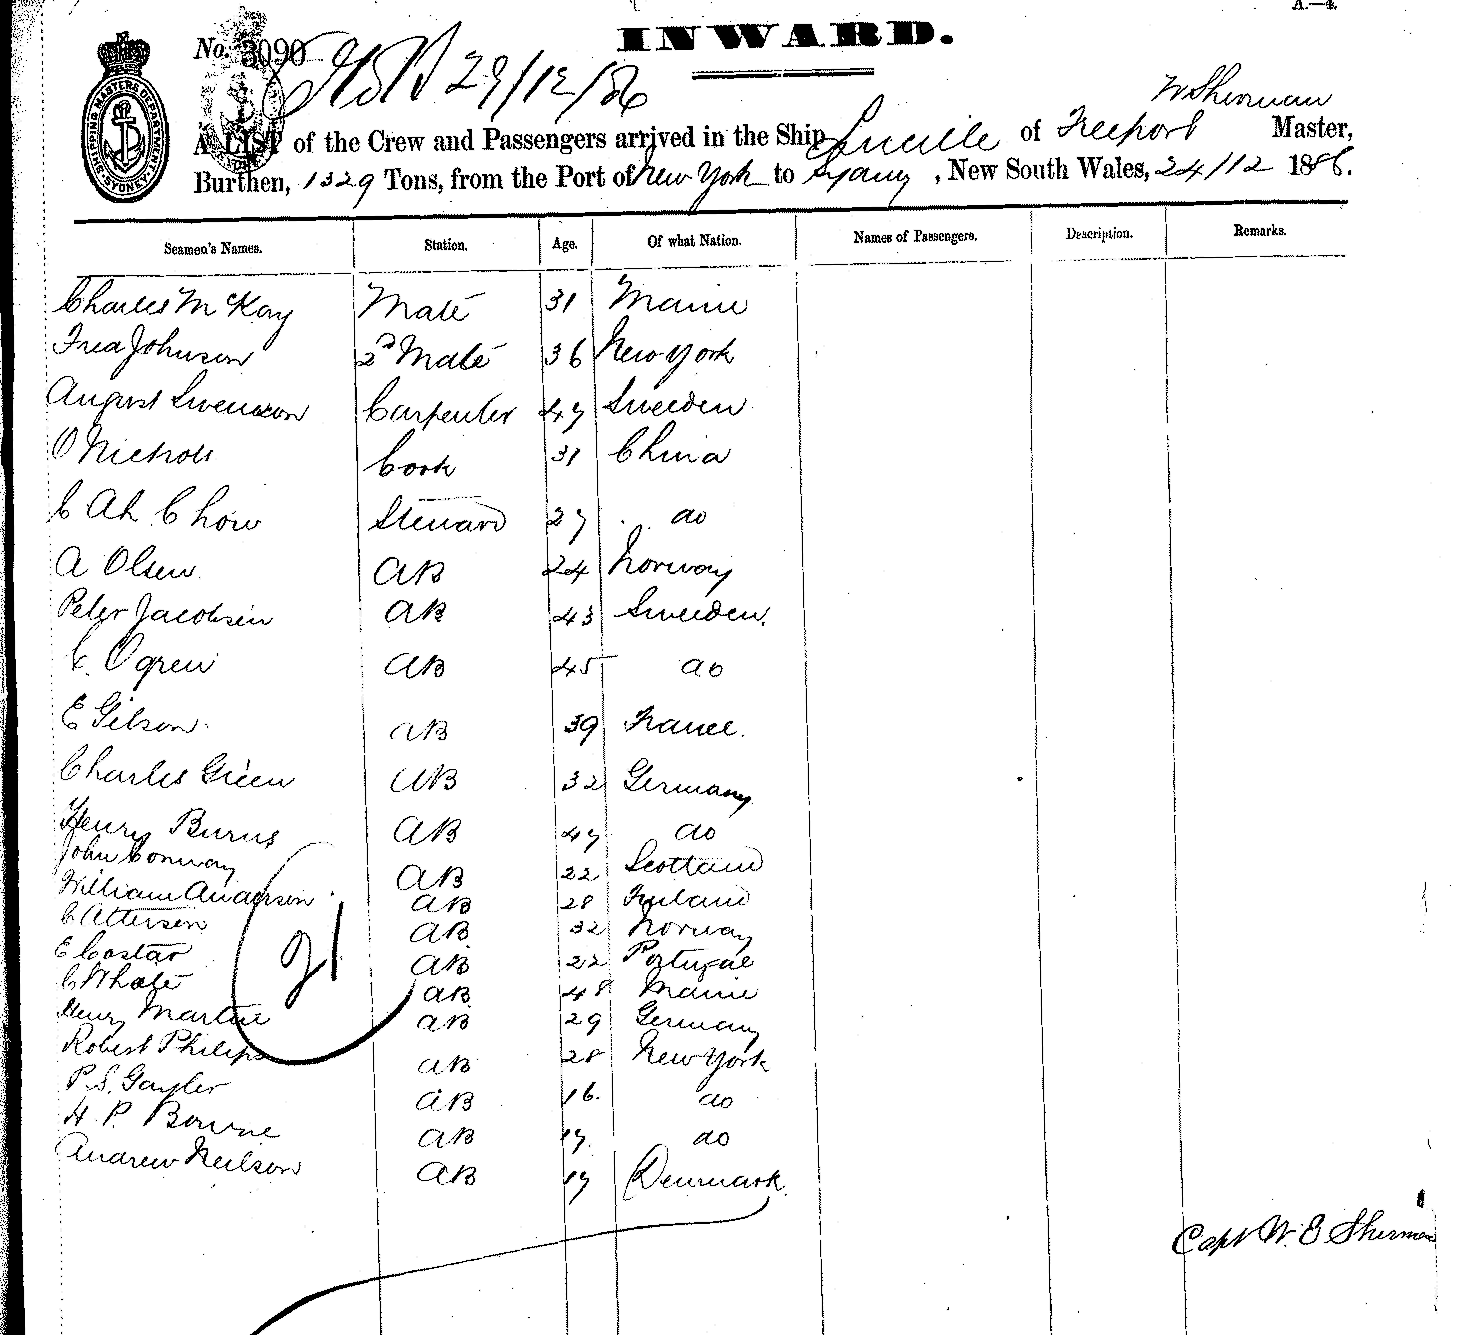 A.—4.
INWARD.
No. 3090
29/12/86
SHIPPING MASTERS DEPARTMENT SYDNEY
W Sherman
A LIST of the Crew and Passengers arrived in the Ship Lucille of Freeport Master,
Burthen, 1329 Tons, from the Port of New York to Sydney, New South Wales, 24/12 1886.
Seamen's Names. Station. Age. Of what Nation. Names of Passengers. Description. Remarks.
Charles McKay Mate 31 Maine
Fred Johnson 2d Mate 36 New York
August Swenson Carpenter 47 Sweden
O Nichols Cook 31 China
C Ah Chow Steward 27 do
A Olsen AB 24 Norway
Peter Jacobsen AB 43 Sweden.
C. Ogren AB 45 do
E Gibson AB 39 France.
Charles Green AB 32 Germany
Henry Burns AB 47 do
John Conway AB 22 Scotland
William Anderson AB 28
C Attersen AB 32 Norway
E Costar AB 22 Portugal
C White AB 48 Maine
Henry Martin AB 29 Germany
Robert Philips AB 28 New York
P. S. Gayler AB 16. do
H. P. Bowne AB 17. do
Andrew Neilson AB 17 Denmark.
21
Capt W. E Sherman